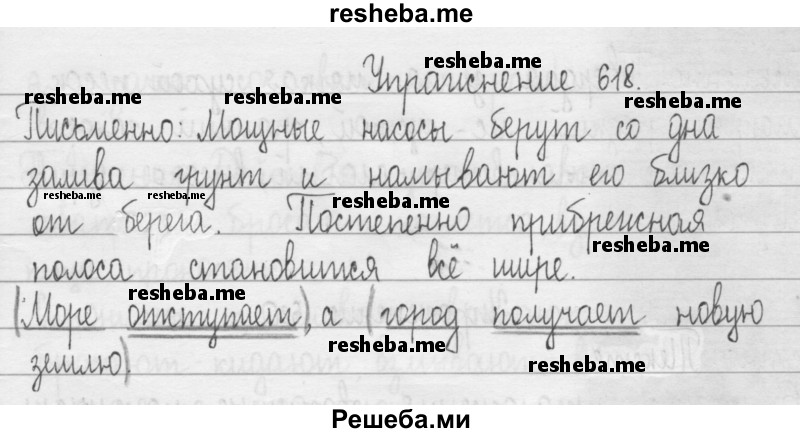 resheba.me
Упражнение 618.
resheba.me
resheba.me resheba.me resheba.me
Письменно: Мощные насосы берут со дна
залива грунт и намывают его близко
resheba.me resheba.me resheba.me
от берега. Постепенно прибрежная
resheba.me
полоса становится всё шире.
resheba.me resheba.me
(Море отступает), а (город получает новую
resheba.me
землю)
resheba.me
Решеба.ми